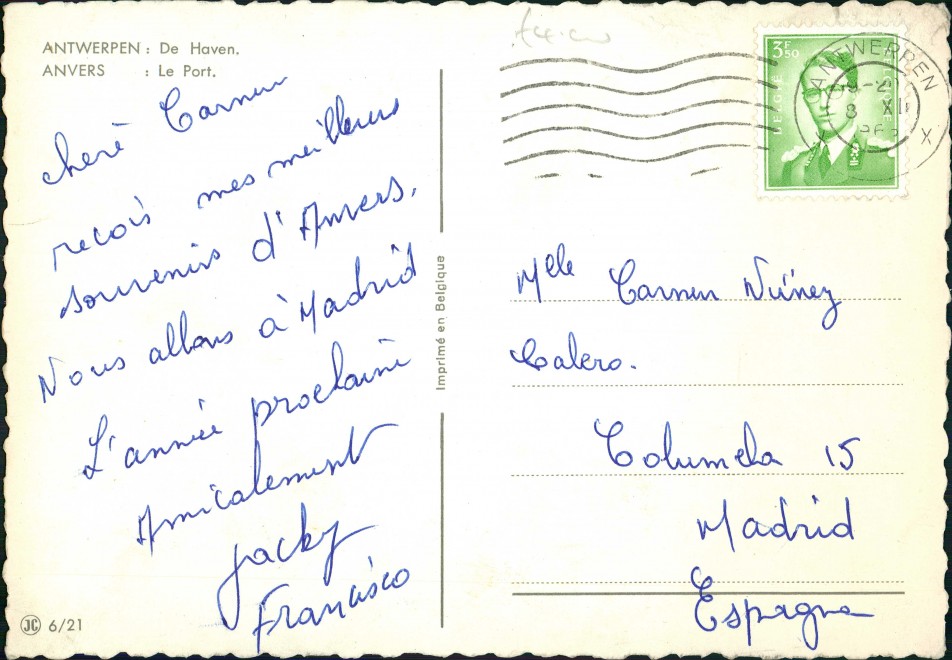 ANTWERPEN : De Haven.
ANVERS : Le Port.
cherè Carmen
recois mes meilleurs
souvenirs d'Anvers.
Nous allons à Madrid
L'année proclaine
Amicalement
Jacky
Francisco
JC 6/21
Imprimé en Belgique
3F50
BELGIE
BELGIQUE
ANTWERPEN
8 XII
X X
Mlle Carmen Núnez
Calero.
Columela 15
Madrid
Espagne